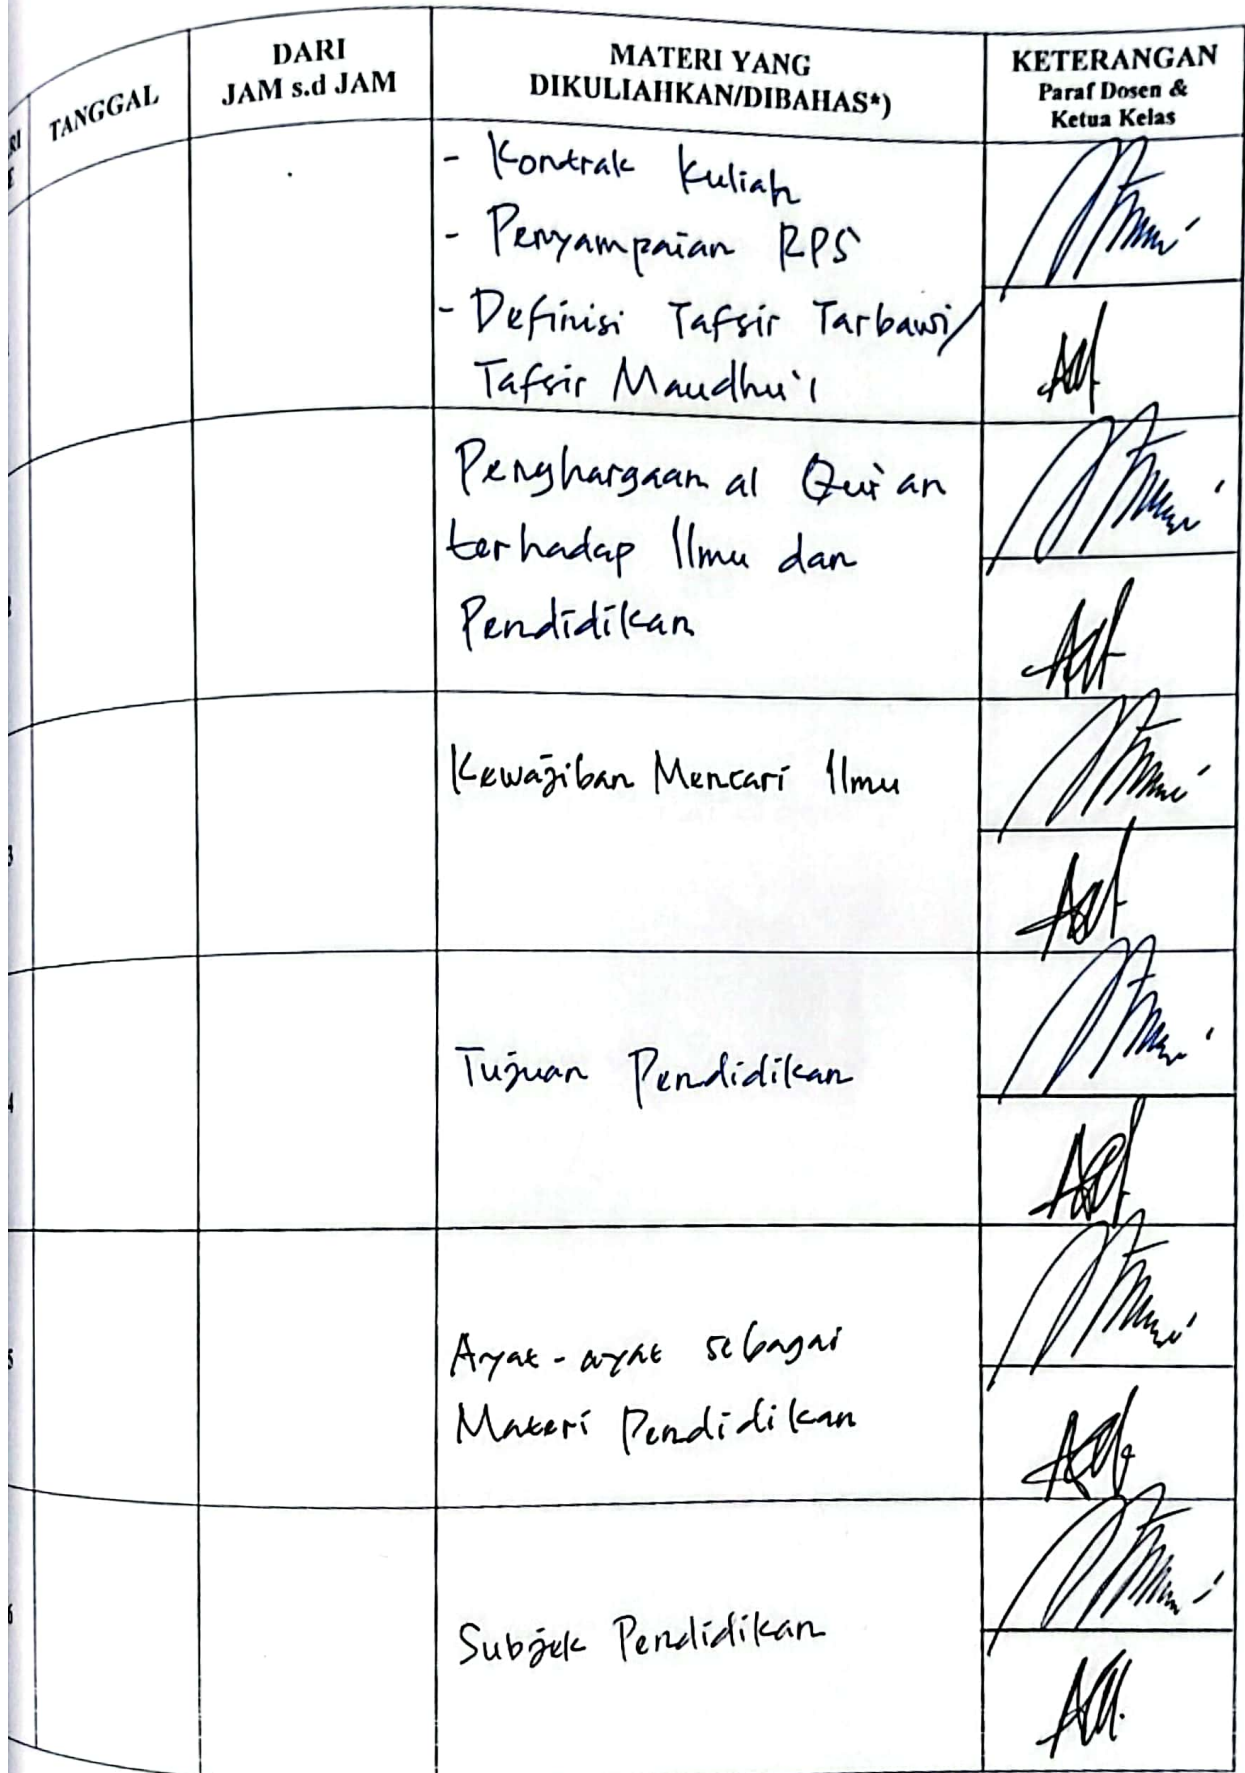 TANGGAL
DARI
JAM s.d JAM
MATERI YANG
DIKULIAHKAN/DIBAHAS*)
KETERANGAN
Paraf Dosen &
Ketua Kelas
- Kontrak Kuliah
- Penyampaian RPS
- Definisi Tafsir Tarbawi/
Tafsir Maudhu'i
Penghargaan al Qur'an
terhadap Ilmu dan
Pendidikan
Kewajiban Mencari Ilmu
Tujuan Pendidikan
Ayat-ayat sebagai
Materi Pendidikan
Subjek Pendidikan